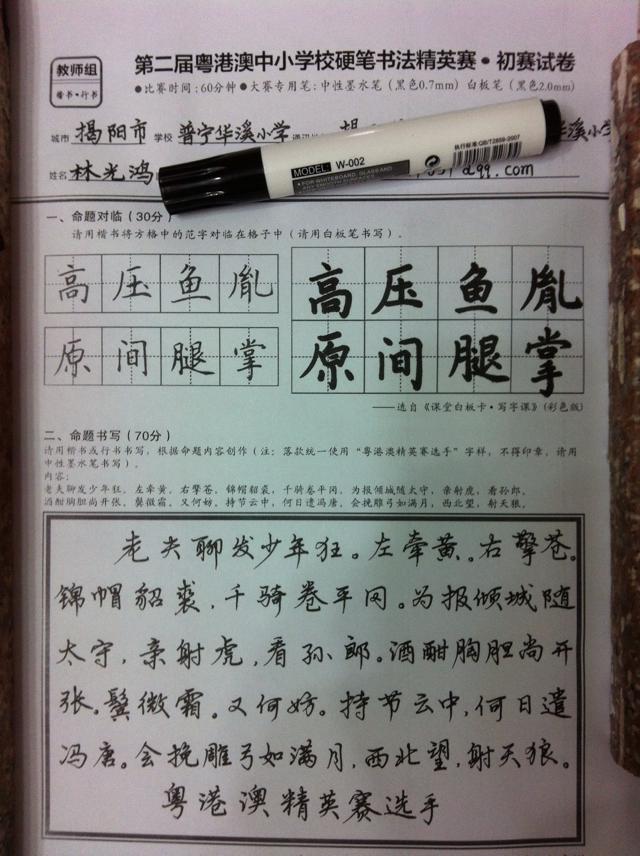 教师组
楷书·行书
第二届粤港澳中小学校硬笔书法精英赛·初赛试卷
●比赛时间:60分钟●大赛专用笔:中性墨水笔(黑色0.7mm)白板笔(黑色2.0mm)
城市 揭阳市 学校 普宁华溪小学
姓名 林光鸿
qq.com
MODEL: W-002
FOR WHITEBOARD, GLASS AND
ANY SMOOTH SURFACES
执行标准:QB/T2859-2007
一、命题对临(30分)
请用楷书将方格中的范字对临在格子中(请用白板笔书写)。
高压鱼胤
原间腿掌
高压鱼胤
原间腿掌
——选自《课堂白板卡·写字课》(彩色版)
二、命题书写(70分)
请用楷书或行书书写,根据命题内容创作(注:落款统一使用“粤港澳精英赛选手”字样,不得印章,请用
中性墨水笔书写)。
内容:
老夫聊发少年狂,左牵黄,右擎苍,锦帽貂裘,千骑卷平冈。为报倾城随太守,亲射虎,看孙郎。
酒酣胸胆尚开张,鬓微霜,又何妨。持节云中,何日遣冯唐。会挽雕弓如满月,西北望,射天狼。
老夫聊发少年狂。左牵黄。右擎苍。
锦帽貂裘,千骑卷平冈。为报倾城随
太守,亲射虎,看孙郎。酒酣胸胆尚开
张。鬓微霜。又何妨。持节云中,何日遣
冯唐。会挽雕弓如满月,西北望,射天狼。
粤港澳精英赛选手